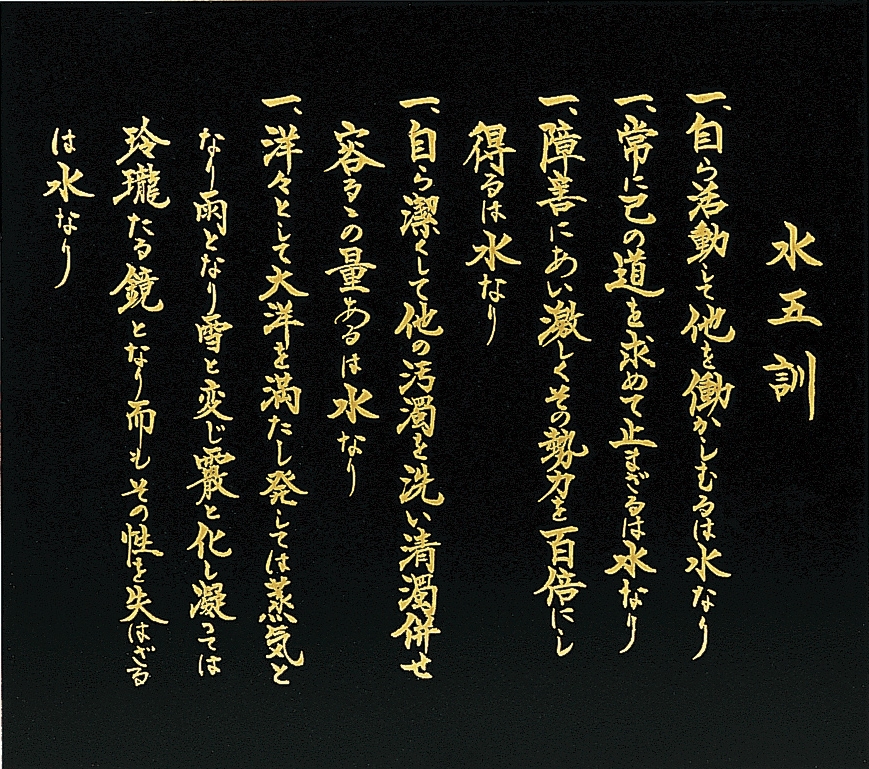 水五訓
一、自ら活動して他を働かしむるは水なり
一、常に己の道を求めて止まざるは水なり
一、障害にあい激しくその勢力を百倍にし
得るは水なり
一、自ら潔くして他の汚濁を洗い清濁併せ
容るゝの量あるは水なり
一、洋々として大洋を満たし発しては蒸気と
なり雨となり雪と変じ霰と化し凝っては
玲瓏たる鏡となり而もその性を失はざる
は水なり